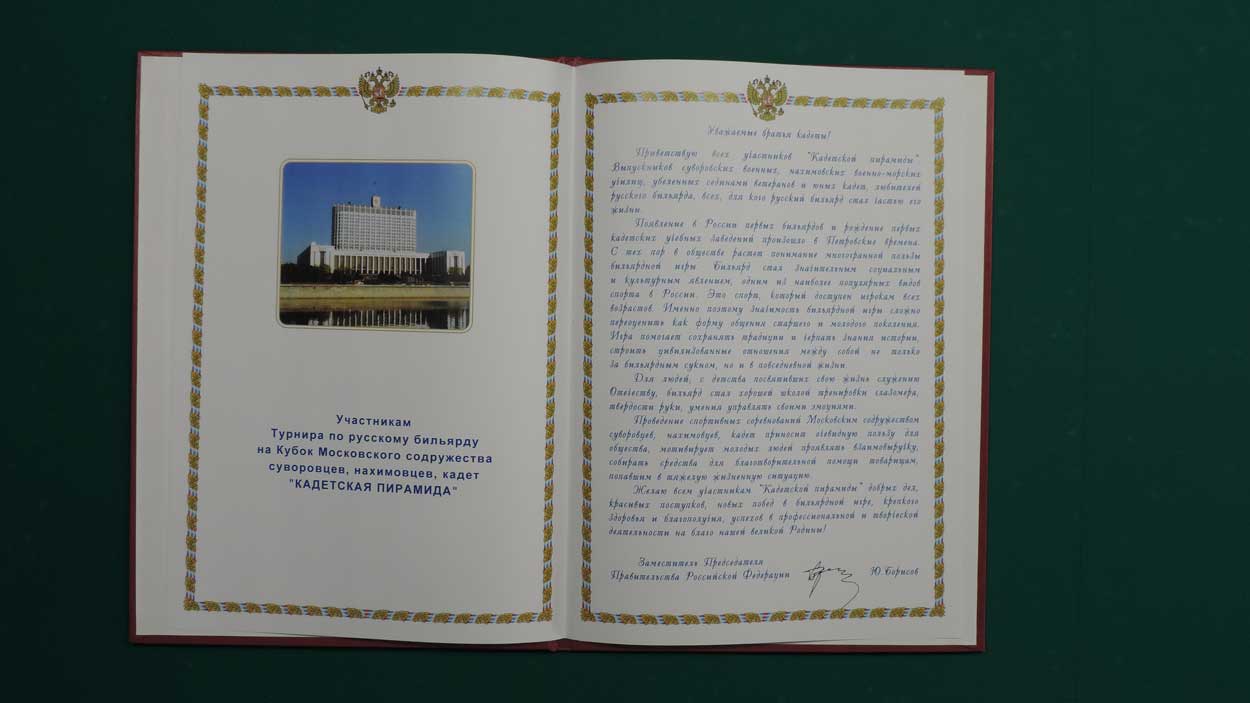 Участникам
Турнира по русскому бильярду
на Кубок Московского содружества
суворовцев, нахимовцев, кадет
"КАДЕТСКАЯ ПИРАМИДА"
Уважаемые братья кадеты!
Приветствую всех участников "Кадетской пирамиды".
Выпускников суворовских военных, нахимовских военно-морских
училищ, убеленных сединами ветеранов и юных кадет, любителей
русского бильярда, всех, для кого русский бильярд стал частью его
жизни.
Появление в России первых бильярдов и рождение первых
кадетских учебных заведений произошло в Петровские времена.
С тех пор в обществе растет понимание многогранной пользы
бильярдной игры. Бильярд стал значительным социальным
и культурным явлением, одним из наиболее популярных видов
спорта в России. Это спорт, который доступен игрокам всех
возрастов. Именно поэтому значимость бильярдной игры сложно
переоценить как форму общения старшего и молодого поколения.
Игра помогает сохранять традиции и черпать знания истории,
строить цивилизованные отношения между собой не только
за бильярдным сукном, но и в повседневной жизни.
Для людей, с детства посвятивших свою жизнь служению
Отечеству, бильярд стал хорошей школой тренировки глазомера,
твердости руки, умения управлять своими эмоциями.
Проведение спортивных соревнований Московским содружеством
суворовцев, нахимовцев, кадет приносит очевидную пользу для
общества, мотивирует молодых людей проявлять взаимовыручку,
собирать средства для благотворительной помощи товарищам,
попавшим в тяжелую жизненную ситуацию.
Желаю всем участникам "Кадетской пирамиды" добрых дел,
красивых поступков, новых побед в бильярдной игре, крепкого
здоровья и благополучия, успехов в профессиональной и творческой
деятельности на благо нашей великой Родины!
Заместитель Председателя
Правительства Российской Федерации
Ю.Борисов